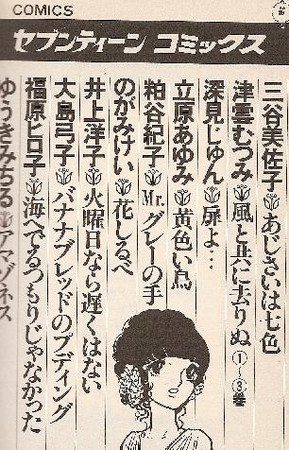 COMICS
セブンティーン コミックス
三谷美佐子 あじさいは七色
津雲むつみ 風と共に去りぬ①〜③巻
深見じゅん 扉よ…
立原あゆみ 黄色い鳥
粕谷紀子 Mr.グレーの手
のがみけい 花しるべ
井上洋子 火曜日なら遅くはない
大島弓子 バナナブレッドのプディング
福原ヒロ子 海へでるつもりじゃなかった
ゆうきみちる アマゾネス